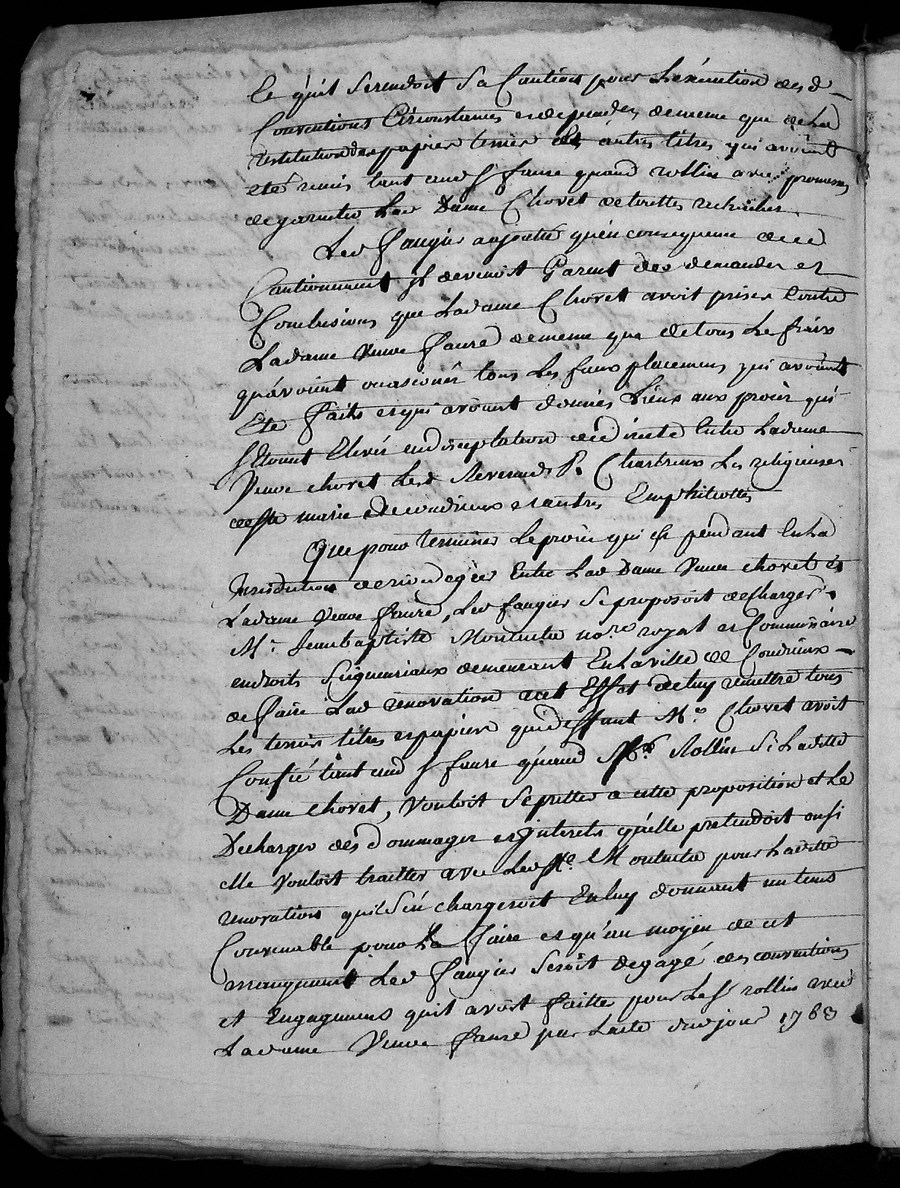 Ce quil Serendoit Sa Caution pour Lexécution desd
Conventions Circonstances et dependen demême que de La
restitution des papier terrier et autres titres qui avoient
eté remis tant aud Sr faure quaud rollin avec promesse
de garantir Lad Dame Chovet de touttes recherches.
Led faugier adjoutté quen consequence de ce
Cautionnement Il devenoit Garent des demandes et
Conclusions que Ladame Chovet avoit prises Contre
Ladame Veuve faure demême que de tous Les fraix
quavoient ocasionés tous Les faux placemens qui avoient
Eté faits et qui avoient donnés Lieux aux procès qui
Setoient Elevés Entre Ladame
Veuve chovet Les d Reverends P. Chartreux Les religieuses
de Ste marie de condrieux et autres Emphiteottes
Que pour terminer Le procès qui Est pendant En La
Jurisdiction Entre Lad Dame Veuve chovet et
Ladame Veuve faure, Led faugier Se proposoit de charger
Me. Jeanbaptiste Montuclle nore royal et Commissaire
en droits Seigneuriaux demeurant En La ville de Condrieux
de faire Lad renovation a cet Effet de luy remettre tous
Les terrier titres et papiers que deffunt Me. Chovet avoit
Confié tant aud Sr faure quaud Me. Rollin Si Laditte
Dame chovet, Vouloit Se pretter a cette proposition et Le
Decharger des dommages et Interets quelle pretendoit ausi
elle Vouloit traitter avec Led Me. Montuclle pour Laditte
renovation quil Sen chargeroit En luy donnant un tems
Convenable pour La faire et qu'au moyen de cet
arrangement Led faugier Seroit degagé des conventions
et Engagemens quil avoit faitte pour Le Sr rollin avec
Ladame Veuve faure par Lacte dud jour 1763